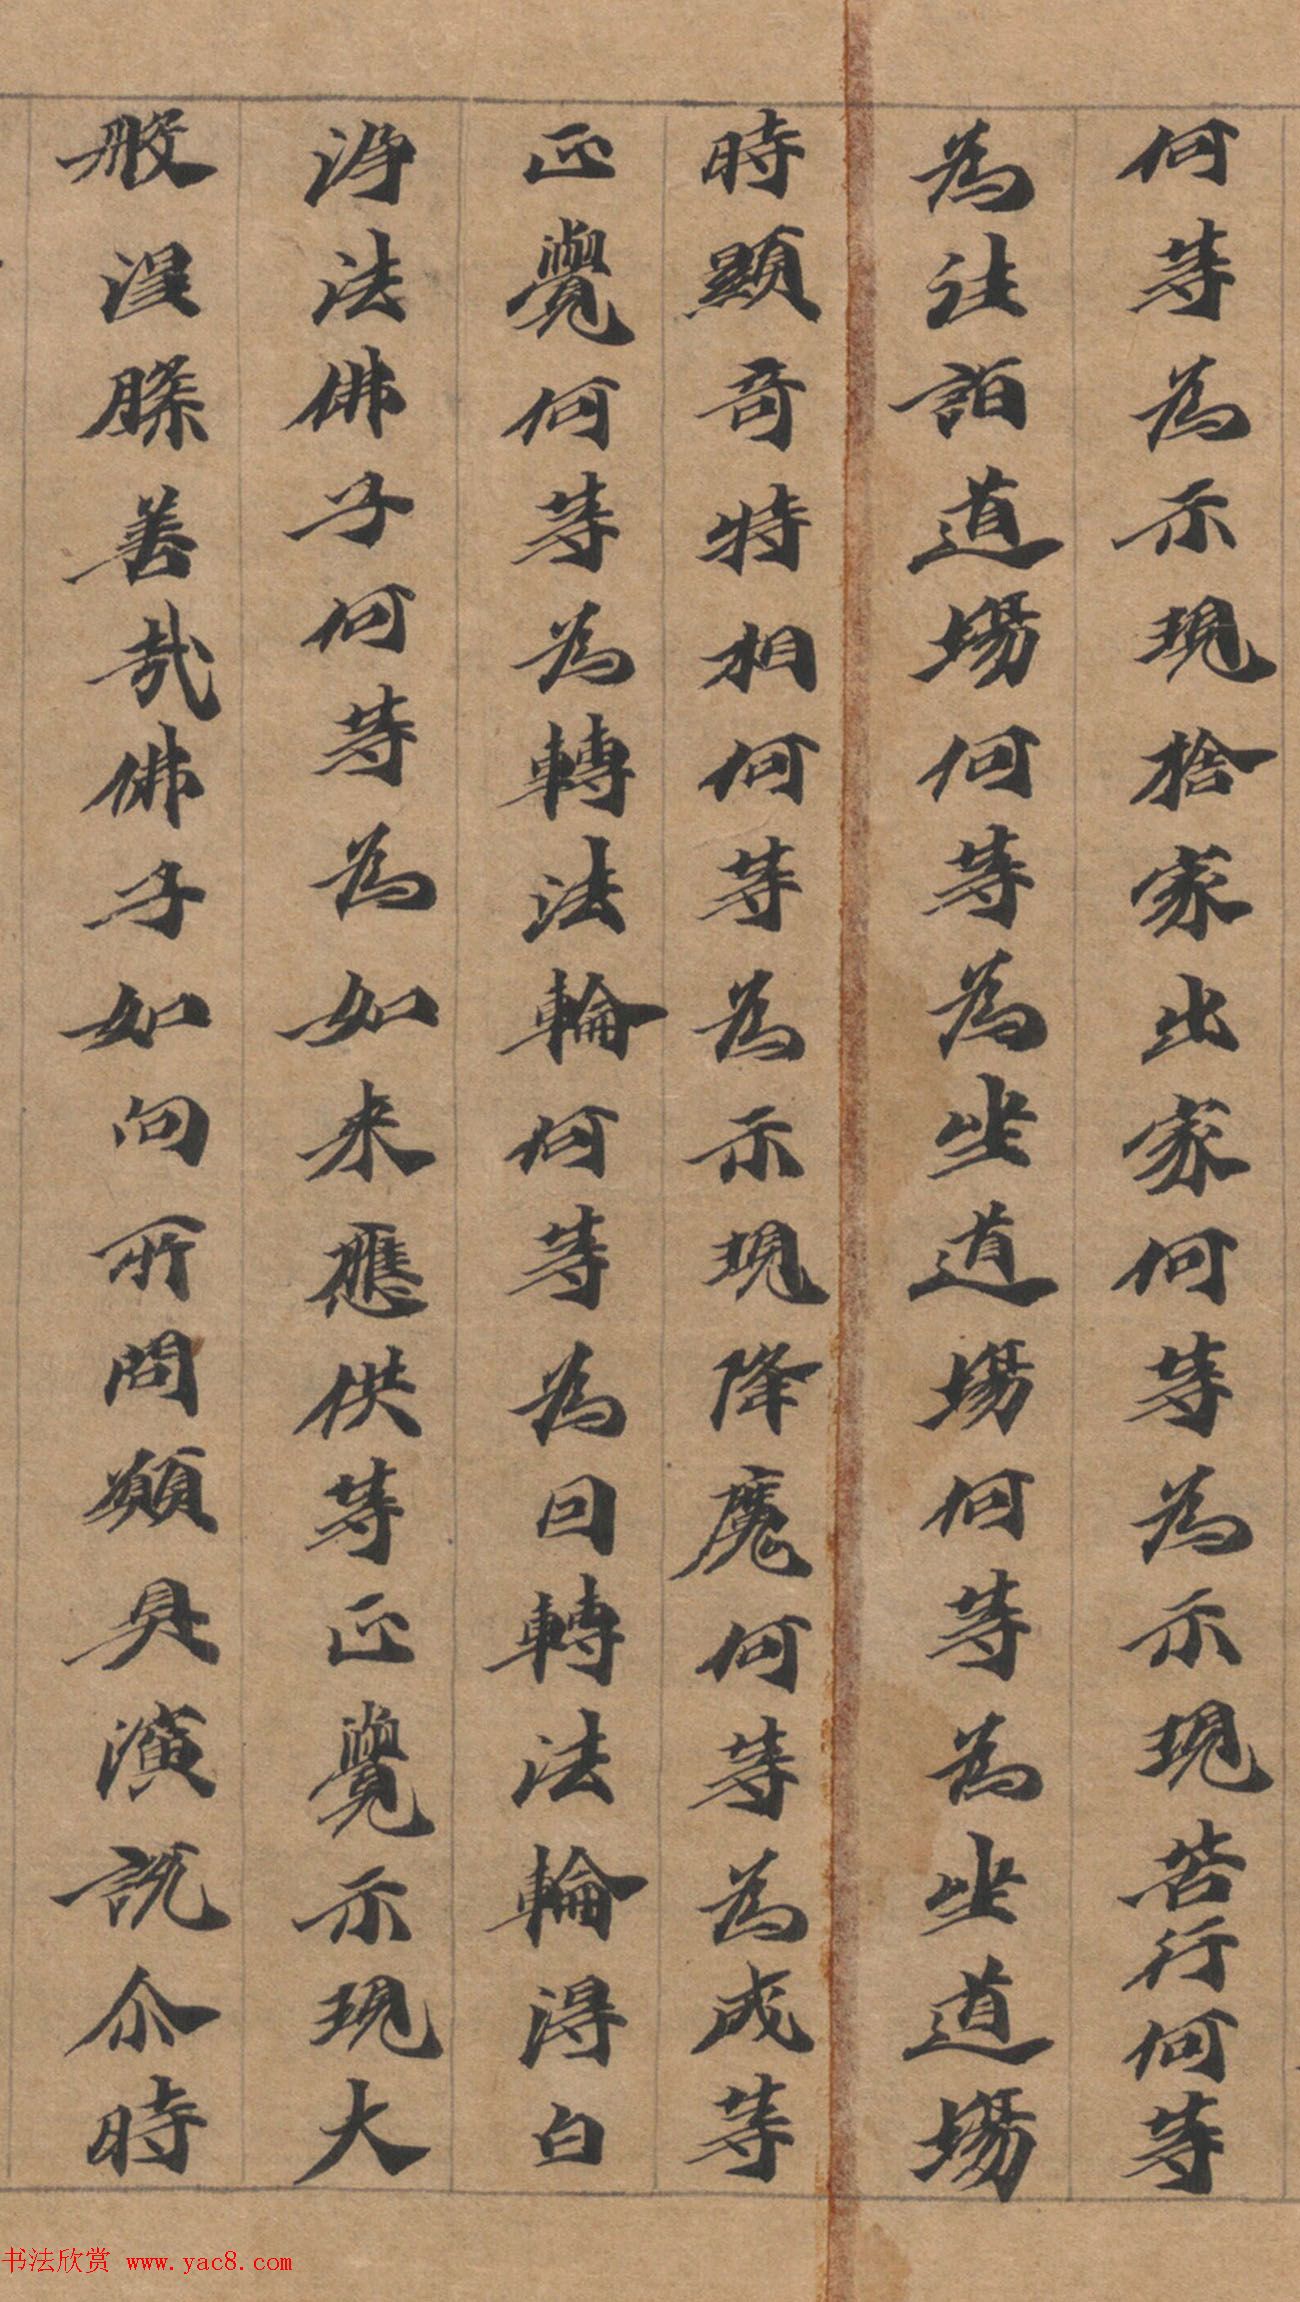 何等為示現捨家出家何等為示現苦行何等
為往詣道場何等為坐道場何等為坐道場
時顯奇特相何等為示現降魔何等為成等
正覺何等為轉法輪何等為回轉法輪得白
淨法佛子何等為如来應供等正覺示現大
般涅槃善哉佛子如向所問願具演說尒時
书法欣赏 www.yac8.com